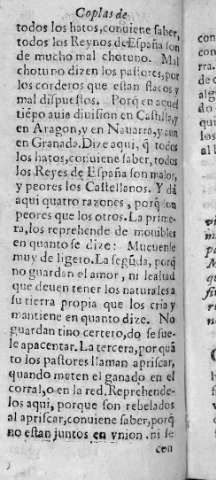 Coplas de
todos los hatos, conuiene saber,
todos los Reynos de España son
de mucho mal chotuno. Mal
chotuno dizen los pastores, por
los corderos que estan flacos y
mal dispuestos. Porq̃ en aquel
tiẽpo auia diuision en Castilla, y
en Aragon, y en Nauarra, y aun
en Granada. Dize aqui, q̃ todos
los hatos, conuiene saber, todos
los Reyes de España son malos,
y peores los Castellanos. Y dà
aqui quatro razones, porq̃ son
peores que los otros. La prime-
ra, los reprehende de mouibles
en quanto se dize: Mueuense
muy de ligero. La segũda, porq̃
no guardan el amor, ni lealtad
que deuen tener los naturales a
su tierra propia que los cria y
mantiene en quanto dize. No
guardan tino certero, do se sue-
le apacentar. La tercera, por quã
to los pastores llaman apriscar,
quando meten el ganado en el
corral, o en la red. Reprehende-
los aqui, porque son rebelados
al apriscar, conuiene saber, porq̃
no estan juntos en vnion. ni se
con